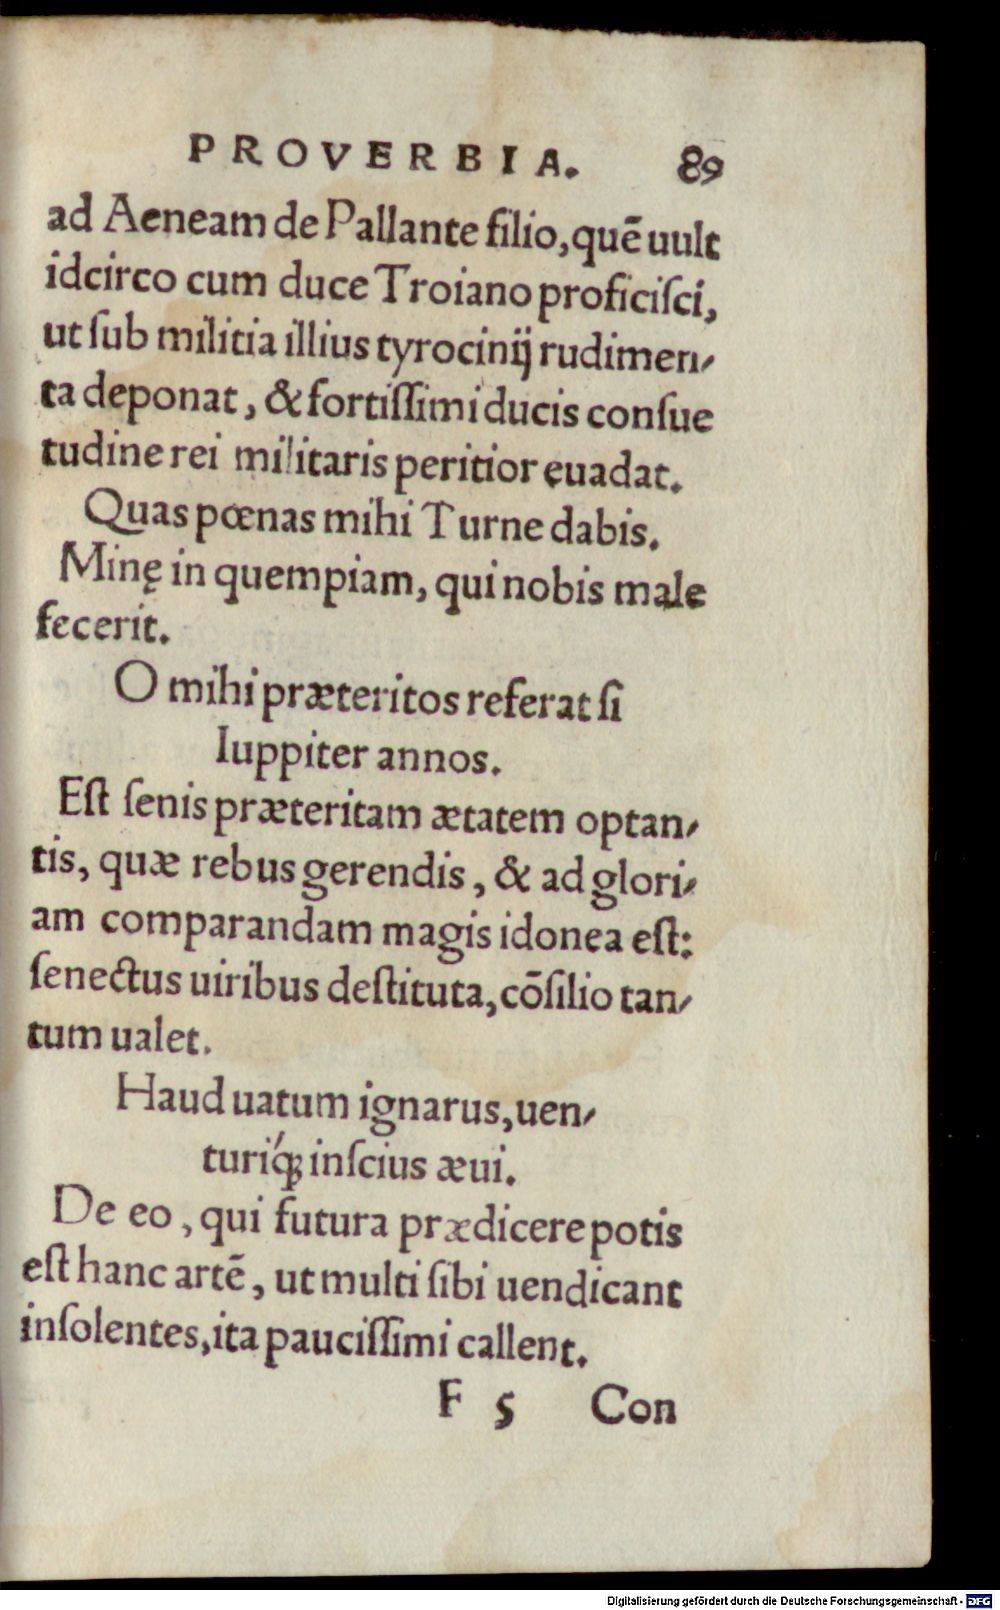 PROVERBIA. 89
ad Aeneam de Pallante filio, quē uult
idcirco cum duce Troiano proficiſci,
ut ſub militia illius tyrocinij rudimen⸗
ta deponat, & fortiſſimi ducis conſue
tudine rei militaris peritior euadat.
Quas pœnas mihi Turne dabis.
Minę in quempiam, qui nobis male
fecerit.
O mihi præteritos referat ſi
Iuppiter annos.
Eſt ſenis præteritam ætatem optan⸗
tis, quæ rebus gerendis, & ad glori⸗
am comparandam magis idonea eſt:
ſenectus uiribus deſtituta, cōſilio tan⸗
tum ualet.
Haud uatum ignarus, uen⸗
turiq́ꝫ inſcius æui.
De eo, qui futura prædicere potis
eſt hanc artē, ut multi ſibi uendicant
inſolentes, ita pauciſſimi callent.
F 5 Con
Digitalisierung gefördert durch die Deutsche Forschungsgemeinschaft - DFG